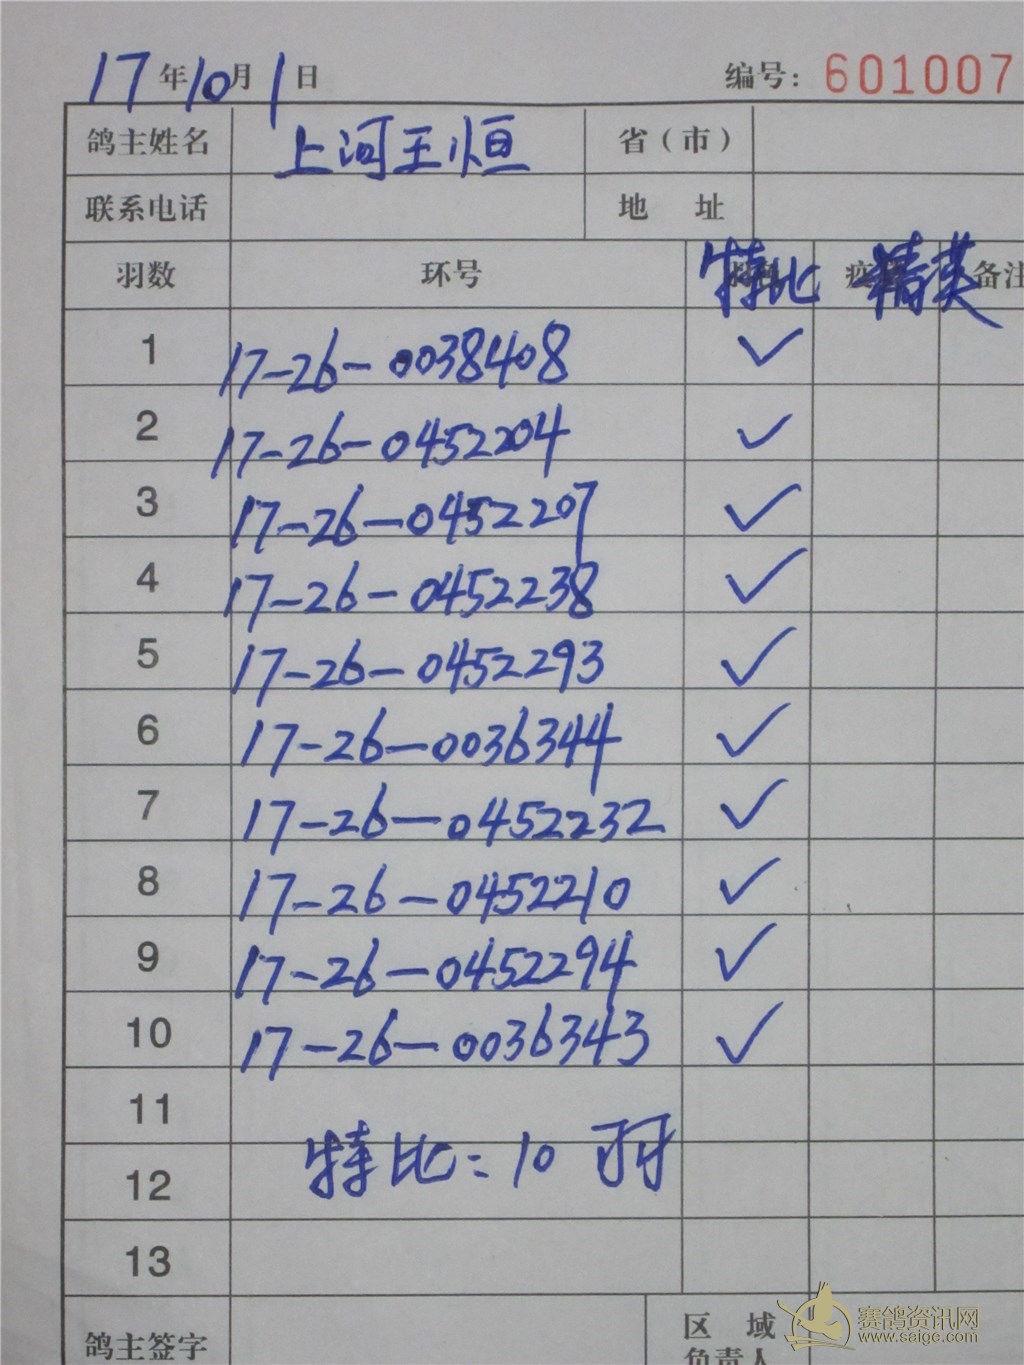 17年10月1日 编号:601007
鸽主姓名 上河王恒 省(市)
联系电话 地 址
羽数 环号 特比 精英 备注
1 17-26-0038408 ✓
2 17-26-0452204 ✓
3 17-26-0452207 ✓
4 17-26-0452238 ✓
5 17-26-0452293 ✓
6 17-26-0036344 ✓
7 17-26-0452232 ✓
8 17-26-0452210 ✓
9 17-26-0452294 ✓
10 17-26-0036343 ✓
11
特比:10羽
12
13
鸽主签字 区 域
负责人
赛鸽资讯网
www.saige.com